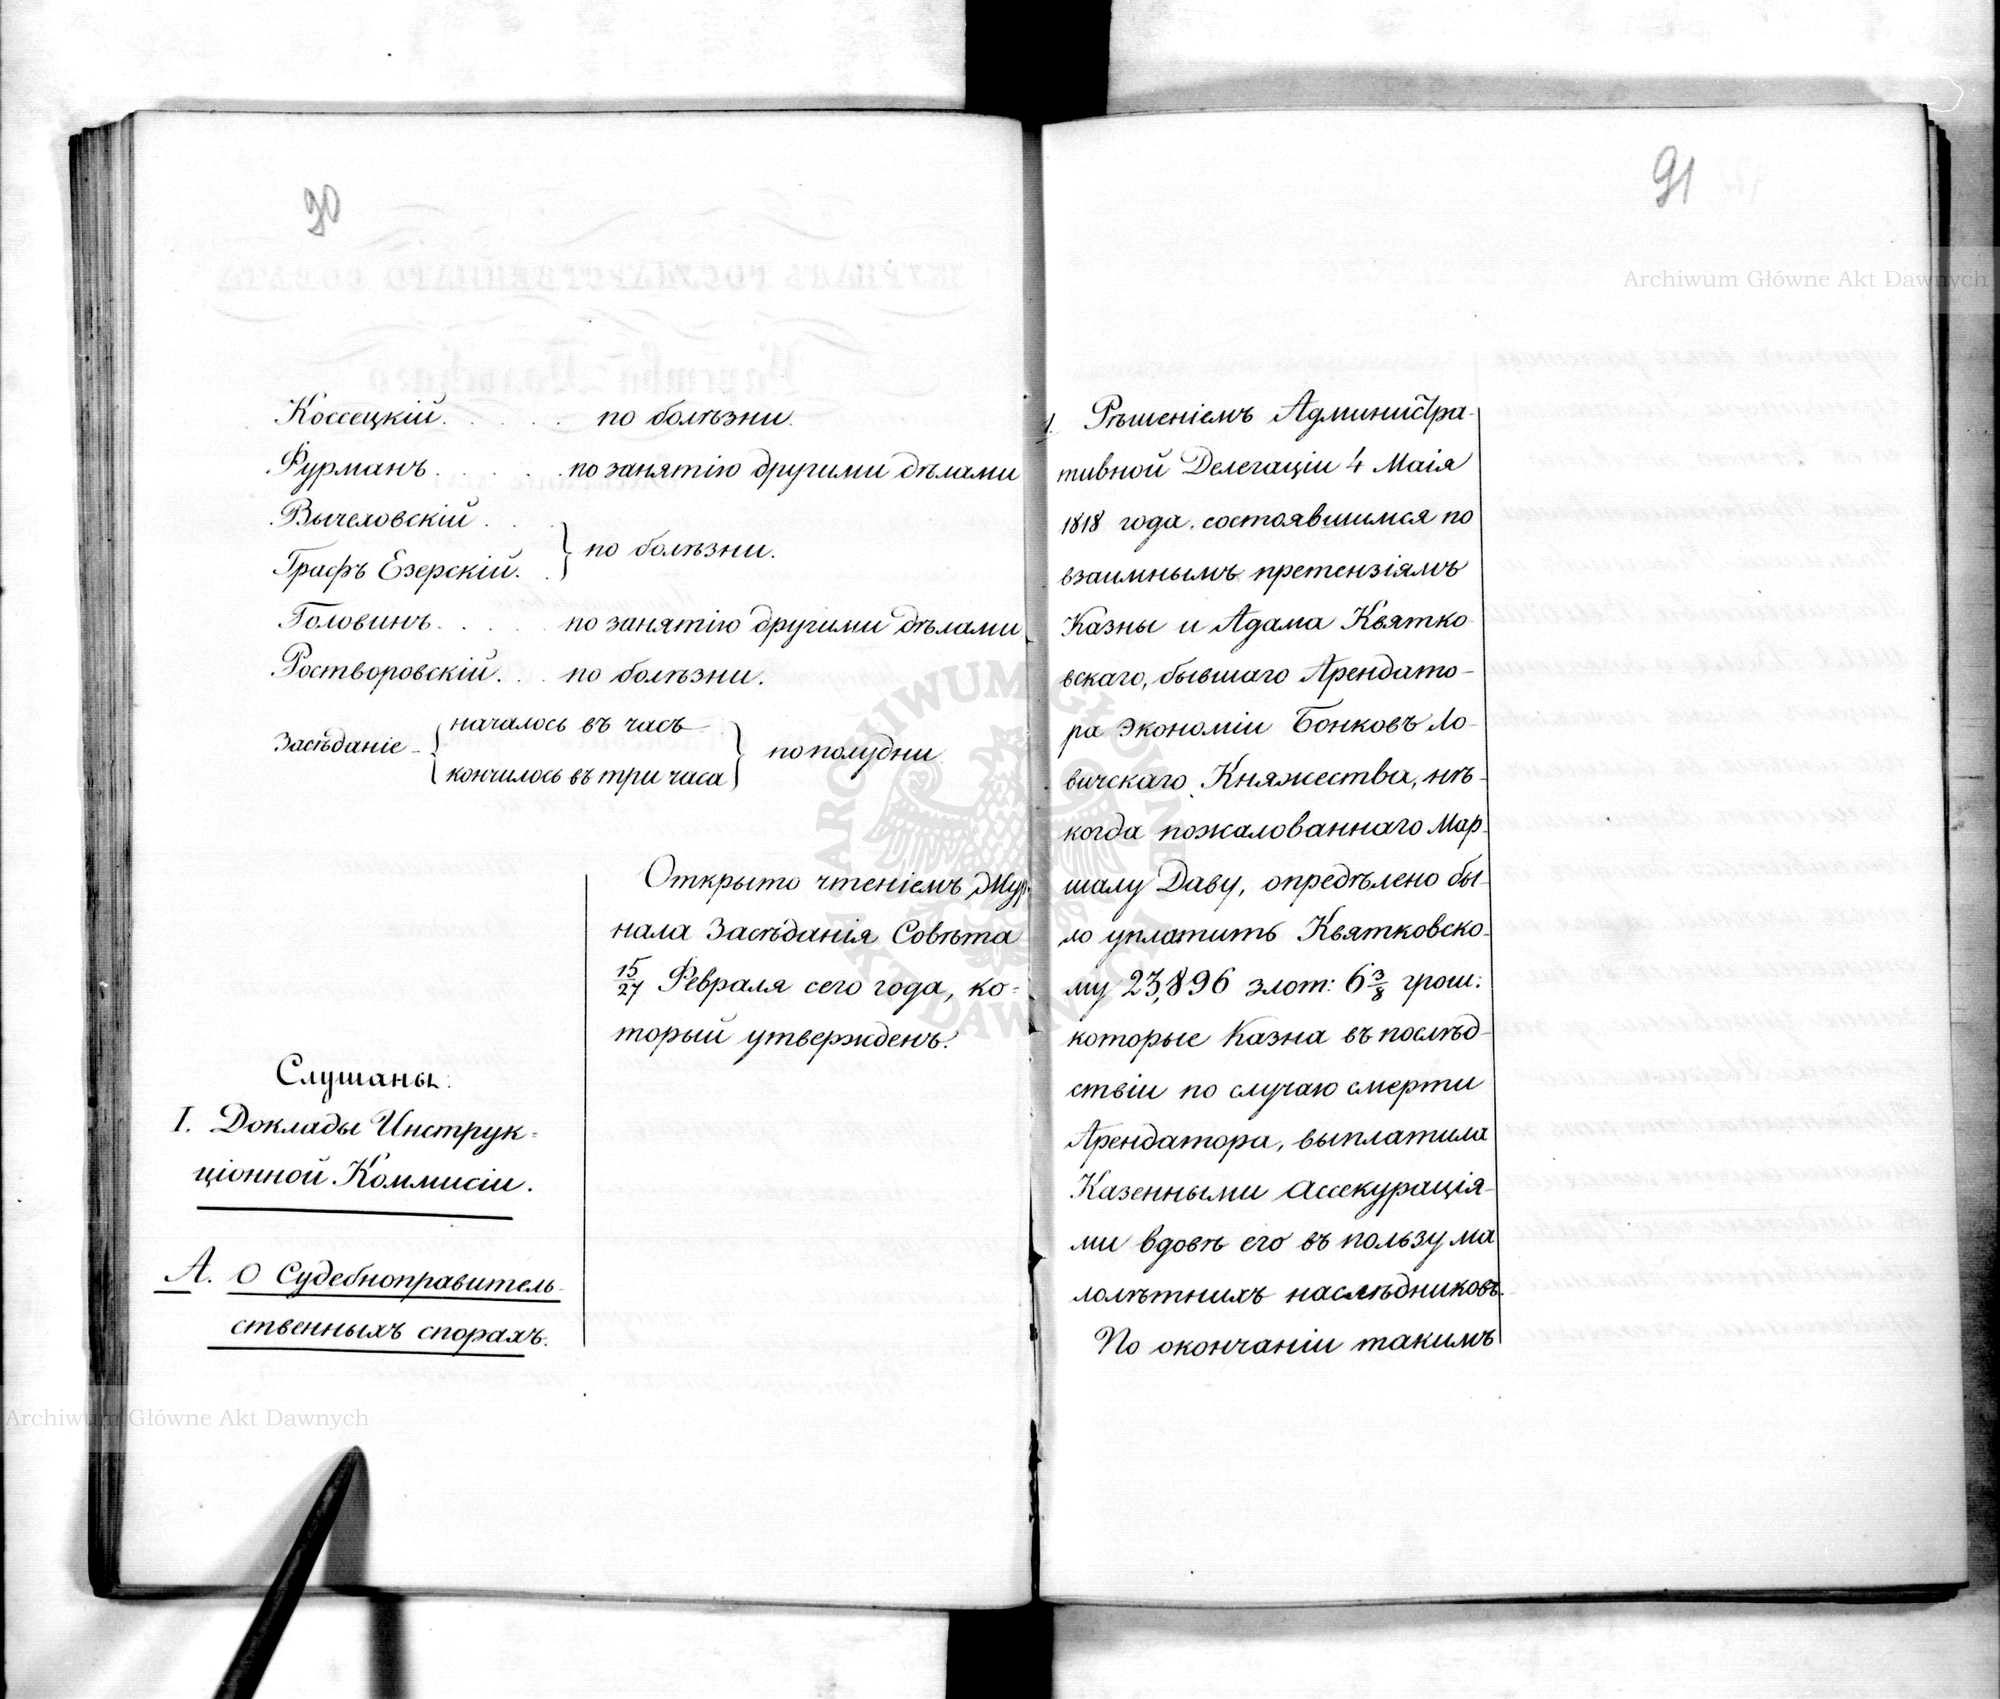 90
Коссецкій. . . . . по болѣзни.
Фурманъ. . . . . по занятію другими дѣлами
Вычеховскій . . .
Графъ Езерскій. . } по болѣзни.
Головинъ. . . . по занятію другими дѣлами
Ростворовскій. . . по болѣзни.
Засѣданіе { началось въ часъ
кончилось въ три часа } по полудни
Открыто чтеніемъ Жур-
нала Засѣданія Совѣта
15/27 Февраля сего года, ко=
торый утвержденъ.
Слушаны:
I. Доклады Инструк=
ціонной Коммисіи.
А. О Судебноправитель-
ственныхъ спорахъ.
91
1. Рѣшеніемъ Администра-
тивной Делегаціи 4 Маія
1818 года. состоявшимся по
взаимнымъ претензіямъ
Казны и Адама Квятко-
вскаго, бывшаго Арендато-
ра Экономіи Бонковъ Ло-
вичскаго Княжества, нѣ-
когда пожалованнаго Мар-
шалу Даву, опредѣлено бы-
ло уплатить Квятковско-
му 23,896 злот: 6 3/8 грош:
которые Казна въ послѣд-
ствіи по случаю смерти
Арендатора, выплатила
Казенными Ассекурація-
ми вдовѣ его въ пользу ма
лолѣтнихъ наслѣдниковъ.
По окончаніи такимъ
Archiwum Główne Akt Dawnych
ARCHIWUM GŁÓWNE AKT DAWNYCH
Archiwum Główne Akt Dawnych